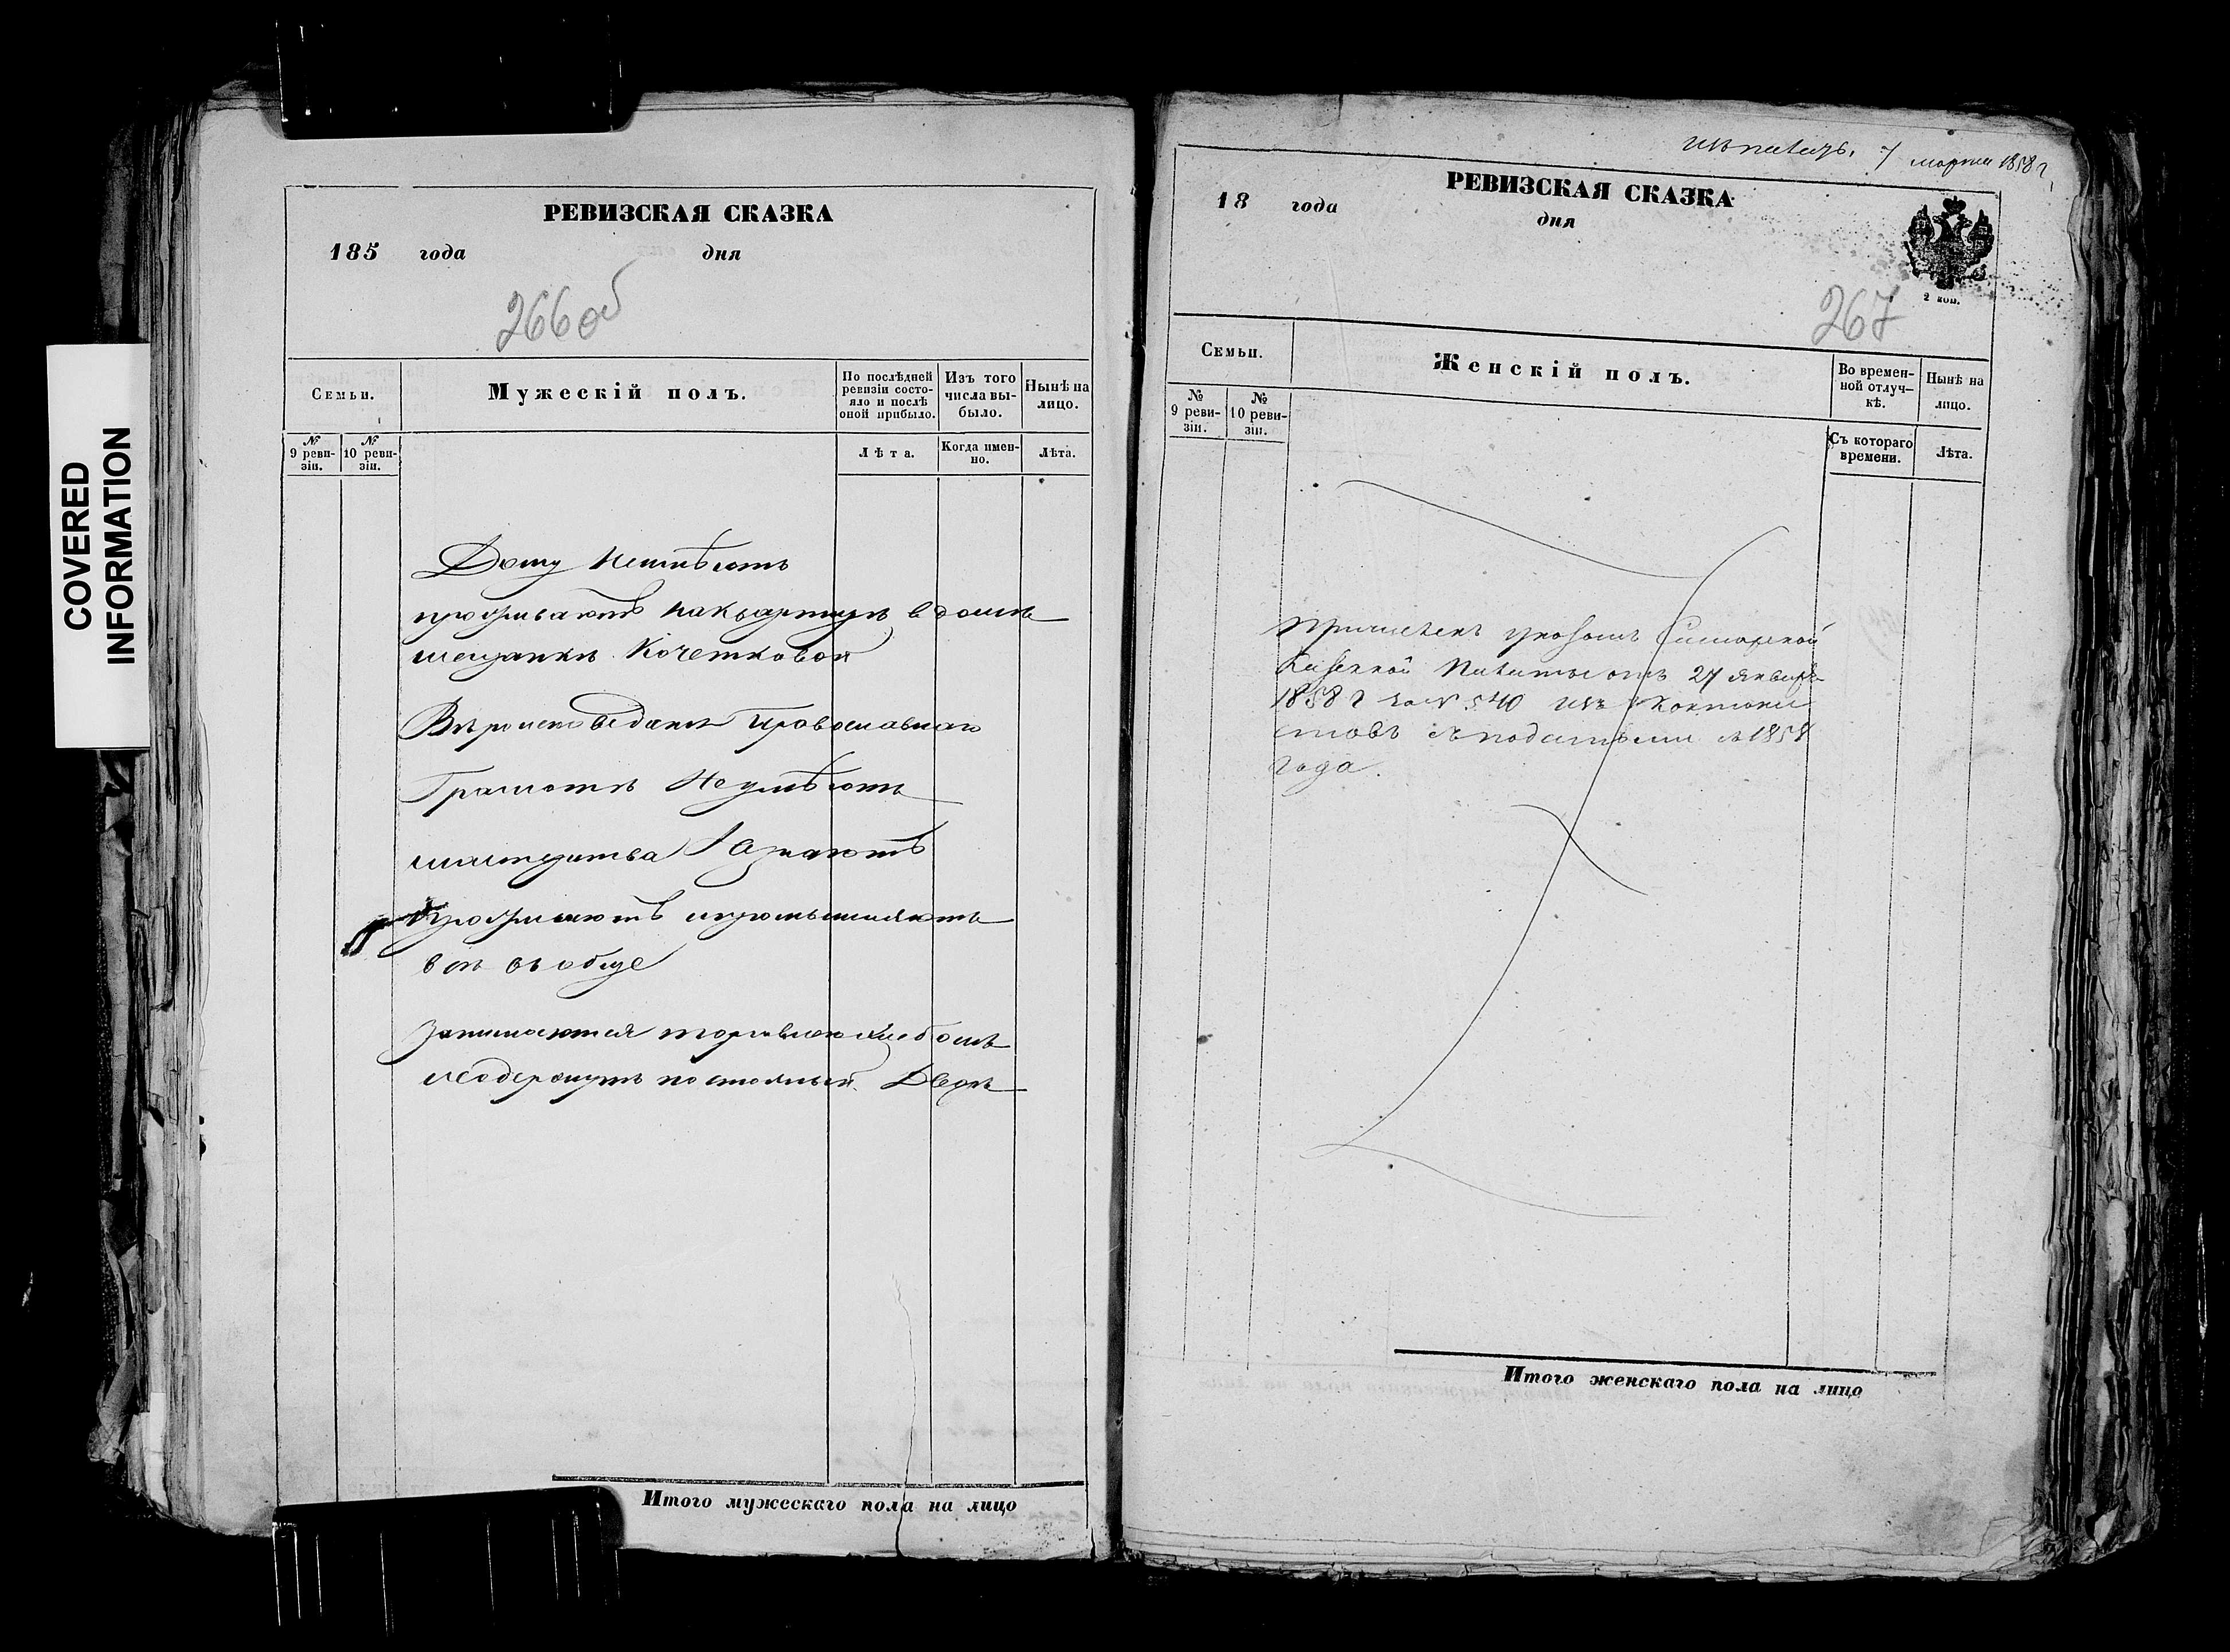 COVERED
INFORMATION
РЕВИЗСКАЯ СКАЗКА
185 года дня
266 об
Семьи.
Мужескій полъ.
По послѣдней
ревизіи состо-
яло и послѣ
оной прибыло.
Изъ того
числа вы-
было.
Нынѣ на
лицо.
№
9 реви-
зіи.
№
10 реви-
зіи.
Лѣта.
Когда имен-
но.
Лѣта.
Дому неимѣютъ
проживаютъ наквартирѣ вдомѣ
мещанки Кочетковой
Вѣроисповеданія Православнаго
Грамотѣ Неумѣютъ
мастерства
Проживаютъ ипромышляютъ
всѣ вообще
Занимаются торговлею хлебомъ
исодержутъ постоялый Дворъ
Итого мужескаго пола на лицо
7 марта 1858 г.
РЕВИЗСКАЯ СКАЗКА
18 года дня
2 коп.
267
Семьи.
Женскій полъ.
Во времен-
ной отлуч-
кѣ.
Нынѣ на
лицо.
№
9 реви-
зіи.
№
10 реви-
зіи.
Съ котораго
времени.
Лѣта.
Причисленъ указомъ Самарской
Казенной Палаты отъ 27 Января
1858 г за № 540 изъ Кантони
стовъ съ податьми съ 1858
года.
Итого женскаго пола на лицо